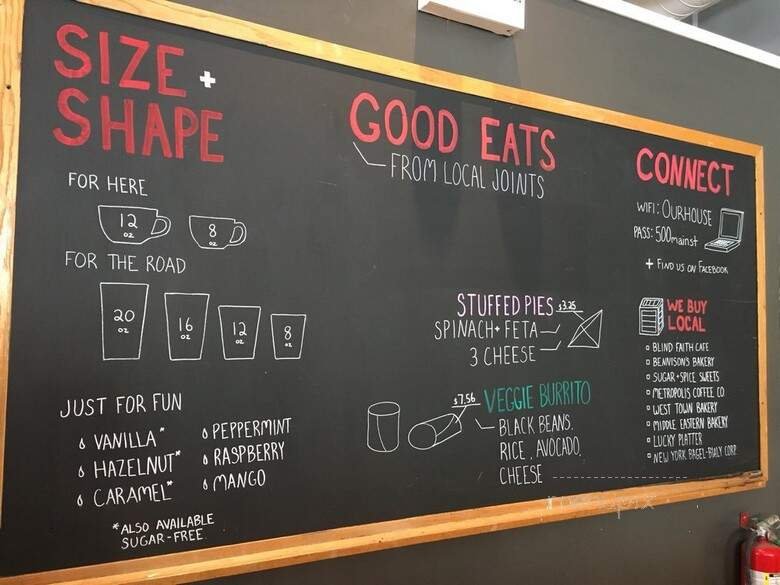 SIZE +
SHAPE
FOR HERE
12 oz
8 oz
FOR THE ROAD
20 oz
16 oz
12 oz
8 oz
JUST FOR FUN
VANILLA*
HAZELNUT*
CARAMEL*
PEPPERMINT
RASPBERRY
MANGO
*ALSO AVAILABLE
SUGAR-FREE
GOOD EATS
FROM LOCAL JOINTS
STUFFED PIES $3.25
SPINACH + FETA
3 CHEESE
$7.56 VEGGIE BURRITO
BLACK BEANS,
RICE, AVOCADO,
CHEESE
CONNECT
WIFI: OURHOUSE
PASS: 500mainst
+ FIND US ON FACEBOOK
WE BUY
LOCAL
BLIND FAITH CAFE
BENNISON'S BAKERY
SUGAR + SPICE SWEETS
METROPOLIS COFFEE CO.
WEST TOWN BAKERY
MIDDLE EASTERN BAKERY
LUCKY PLATTER
NEW YORK BAGEL-BIALY CORP.